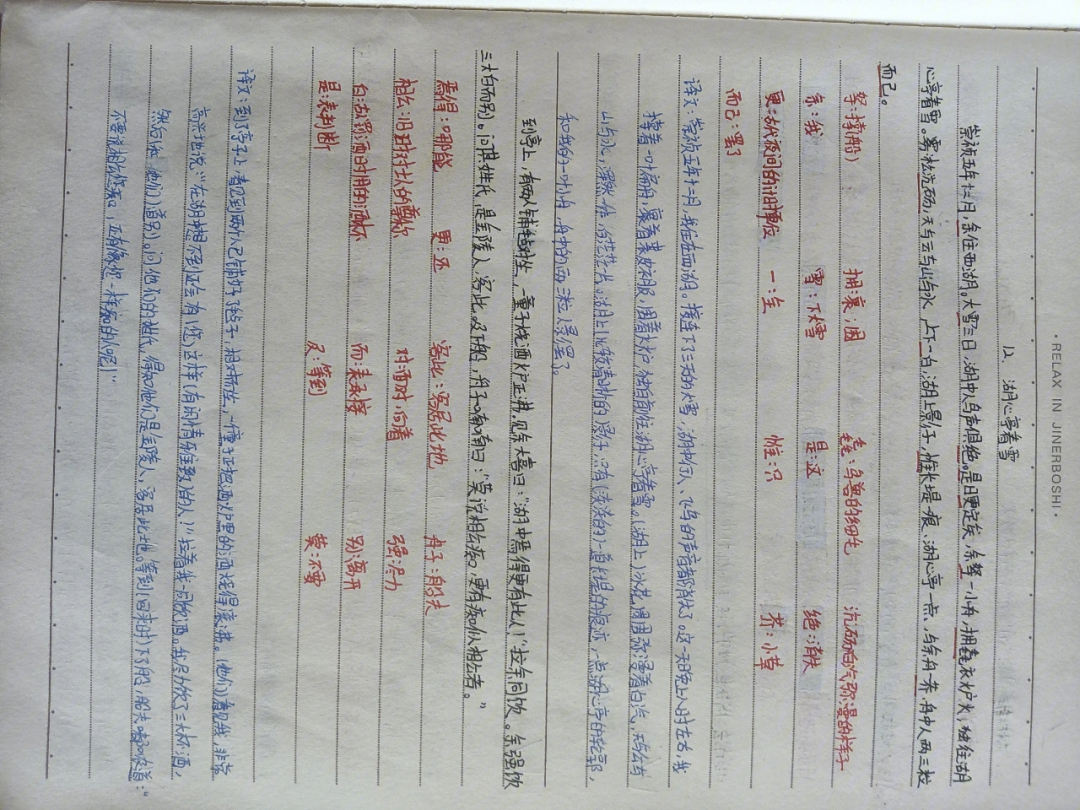 ·RELAX IN JINERBOSHI·
12. 湖心亭看雪
崇祯五年十二月,余住西湖。大雪三日,湖中人鸟声俱绝。是日更定矣,余拏一小舟,拥毳衣炉火,独往湖
心亭看雪。雾凇沆砀,天与云与山与水,上下一白,湖上影子,惟长堤一痕、湖心亭一点、与余舟一芥、舟中人两三粒
而已。
拏:撑(船) 拥:裹;围 毳:鸟兽的细毛 沆砀:白汽弥漫的样子
余:我 雪:下大雪 是:这 绝:消失
更:古代夜间的计时单位 一:全 惟:只 芥:小草
而已:罢了
译文:崇祯五年十二月,我住在西湖。接连下了三天的大雪,湖中行人、飞鸟的声音都消失了。这一天晚上八时左右,我
撑着一叶扁舟,裹着裘皮衣服,围着火炉,独自前往湖心亭看雪。(湖上)冰花周围弥漫着白汽,天与云与
山与水,浑然一体,白茫茫一片,湖上比较清晰的影子,只有(淡淡的)一道长堤的痕迹,一点湖心亭的轮廓,
和我的一叶小舟,舟中的两三粒人影罢了。
到亭上,有两人铺毡对坐,一童子烧酒炉正沸。见余大喜曰:“湖中焉得更有此人!”拉余同饮。余强饮
三大白而别。问其姓氏,是金陵人,客此。及下船,舟子喃喃曰:“莫说相公痴,更有痴似相公者。”
焉得:哪能 更:还 客此:客居此地 舟子:船夫
相公:旧时对士人的尊称 对:面对,向着 强:尽力
白:古代罚酒时用的酒杯 而:表承接 别:离开
是:表判断 及:等到 莫:不要
译文:到了亭子上,看见两个人已铺好了毡子,相对而坐,一个童子正把酒炉里的酒烧得滚沸。(他们)看见我,非常
高兴地说:“在湖中想不到还会有(您)这样(有闲情雅致)的人!”拉着我一同饮酒。我尽力饮了三大杯酒,
然后和(他们)道别。问他们的姓氏,得知他们是金陵人,客居此地。等到(回来时)下了船,船夫嘟哝道:“
不要说相公您痴,还有像您一样痴的人呢!”